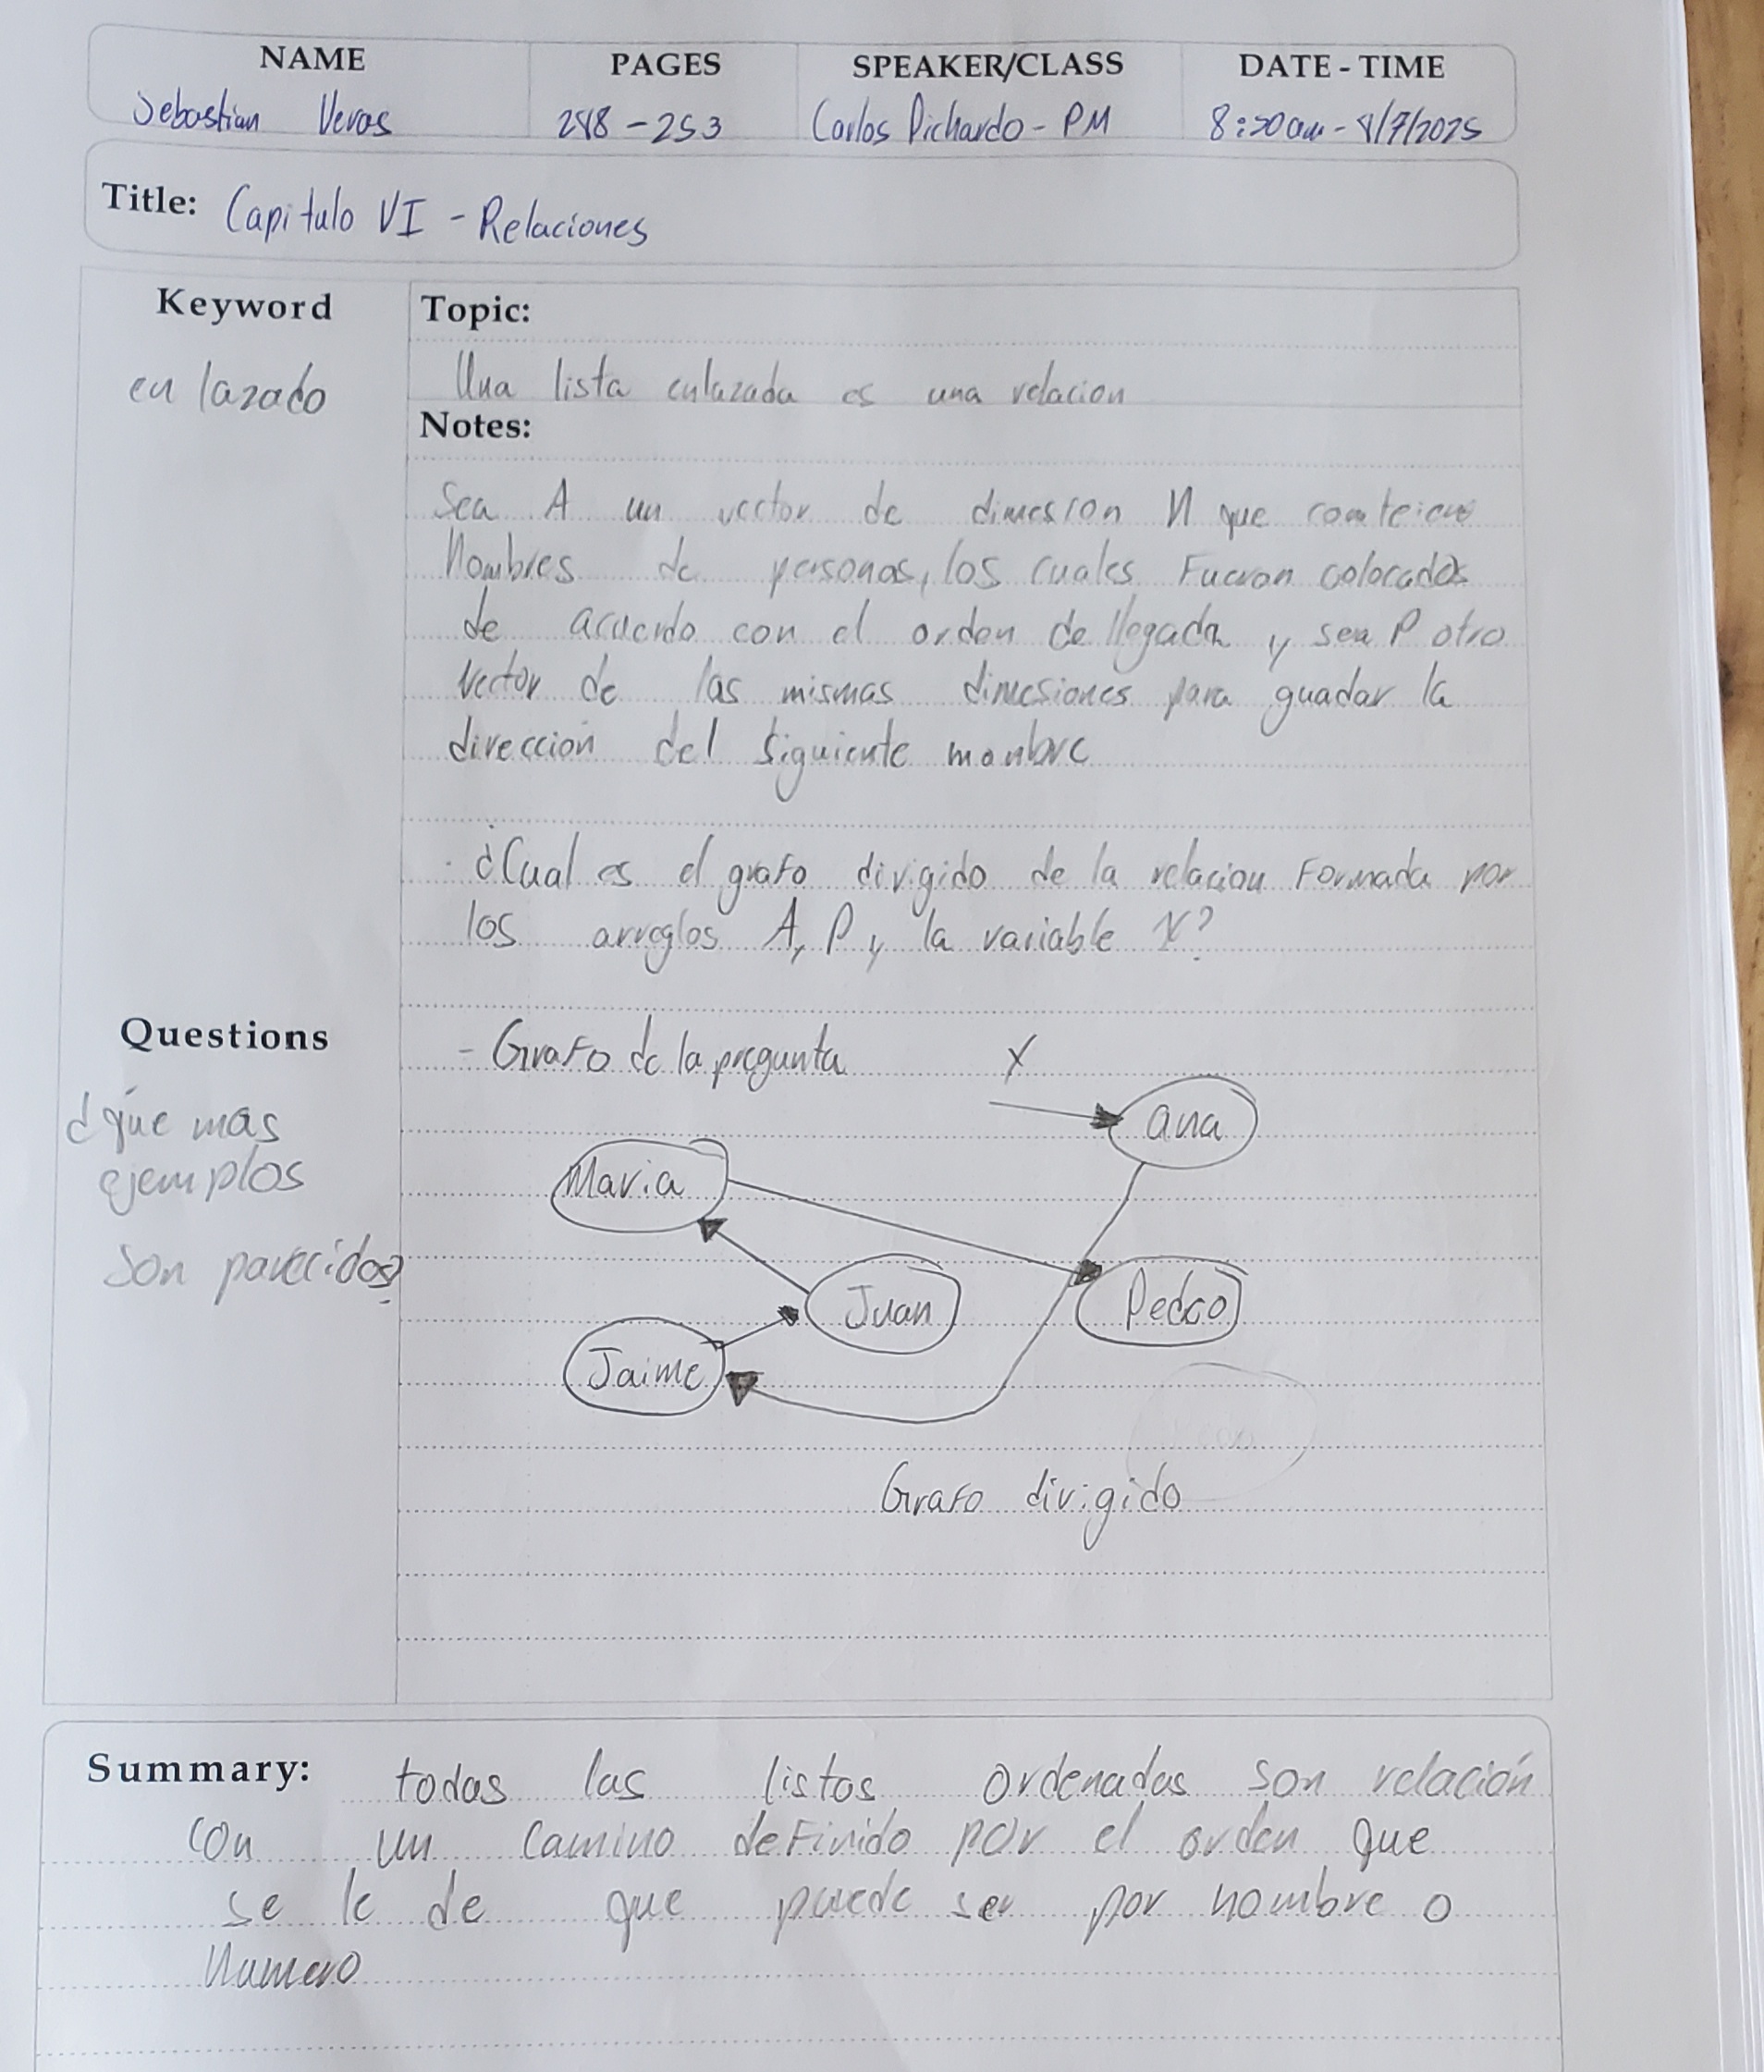 NAME PAGES SPEAKER/CLASS DATE - TIME
Sebastian Veras 248 - 253 Carlos Pichardo - PM 8:20am - 8/7/2025
Title: Capitulo VI - Relaciones
Keyword
en lazado
Topic:
Una lista enlazada es una relacion
Notes:
Sea A un vector de dimesion N que conteiene
Nombres de personas, los cuales Fueron colocados
de acuerdo con el orden de llegada y sea P otro
vector de las mismas dimesiones para guadar la
dirección del siguiente monbre
¿Cual es el grafo dirigido de la relacion Formada por
los arreglos A, P y la variable X?
Questions
¿que mas
ejemplos
son parecidos?
- Grafo de la pregunta X
ana
Maria
Juan
Pedro
Jaime
Grafo dirigido
Summary: todas las listas ordenadas son relación
con un camino deFinido por el orden que
se le de que puede ser por nombre o
Numero